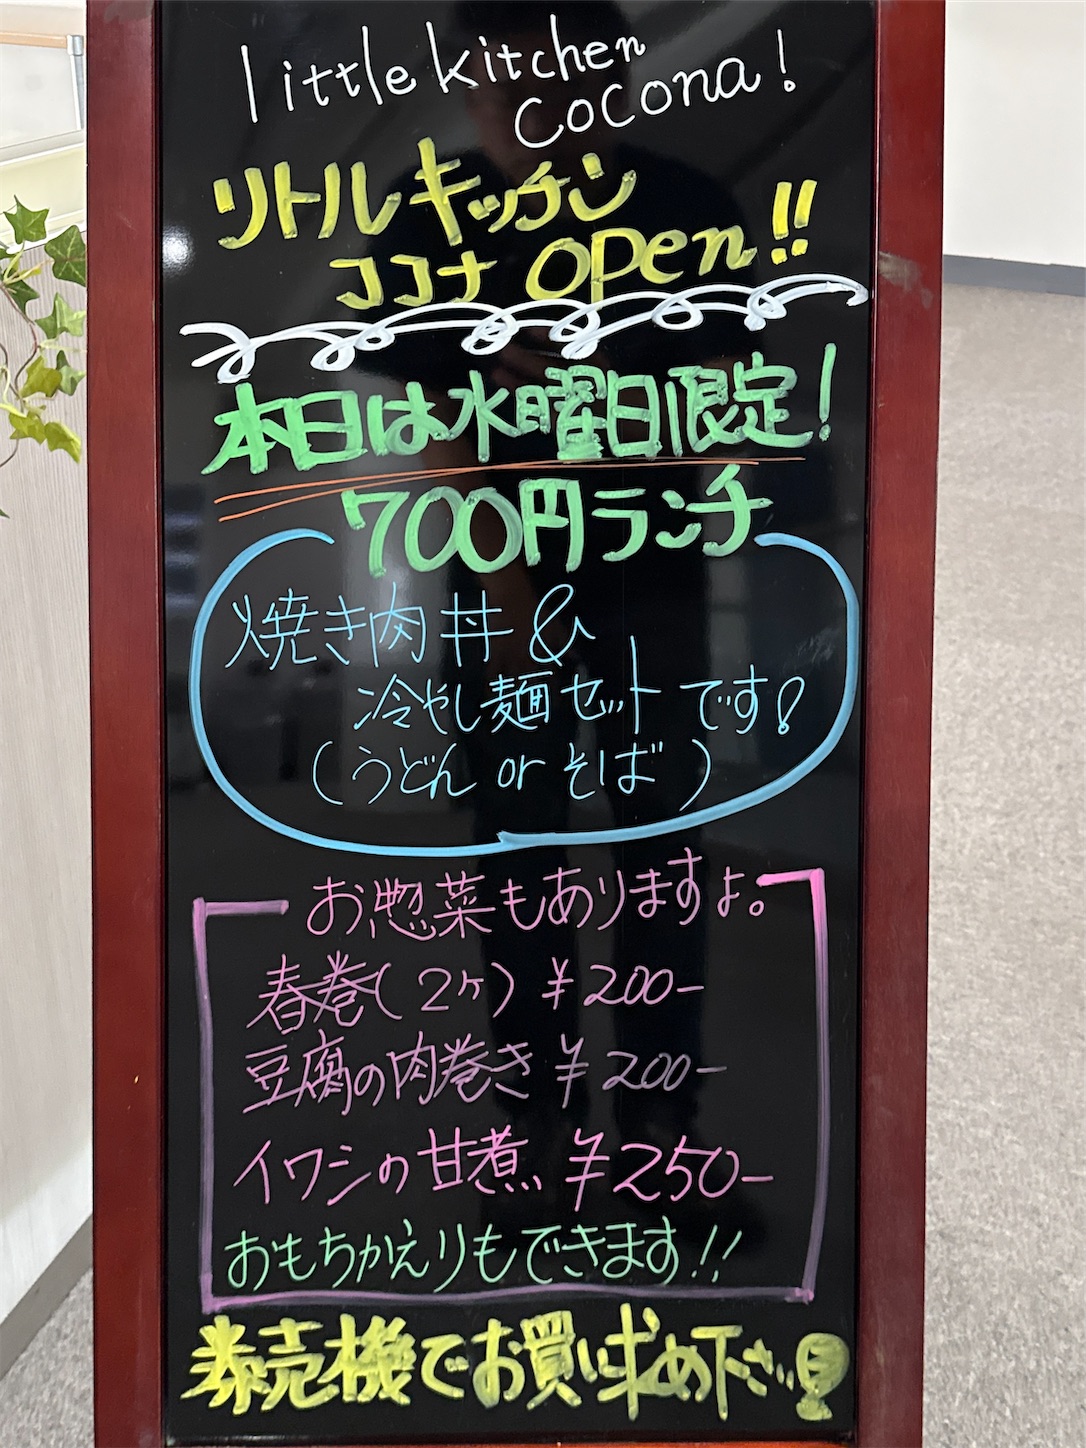 little kitchen
cocona!
リトルキッチン
ココナ open!!
本日は水曜日限定!
700円ランチ
焼き肉丼&
冷やし麺セットです!
(うどん or そば)
お惣菜もありますよ。
春巻(2ケ) ¥200-
豆腐の肉巻き ¥200-
イワシの甘煮 ¥250-
おもちかえりもできます!!
券売機でお買い求め下さい!